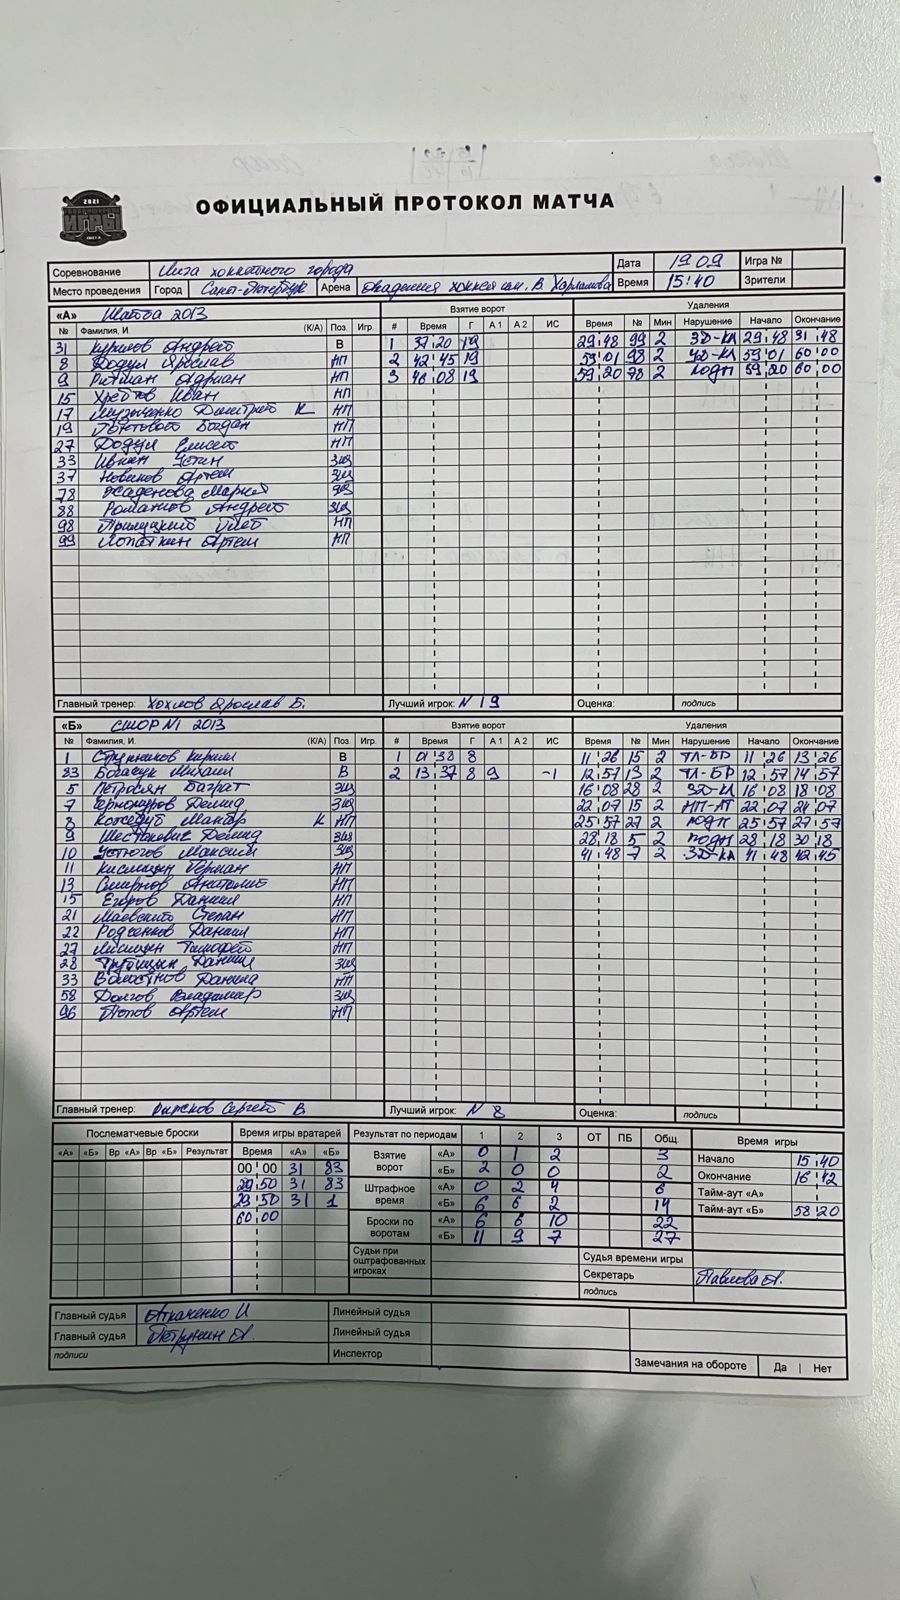 2021
ИГРЫ
ОФИЦИАЛЬНЫЙ ПРОТОКОЛ МАТЧА
Соревнование Лига хоккейного города Дата 19 09 Игра №
Место проведения Город Санкт-Петербург Арена Академия хоккея им. В Харламова Время 15:40 Зрители
«А» Шайба 2013 Взятие ворот Удаления
№ Фамилия, И. (К/А) Поз. Игр. # Время Г А 1 А 2 ИС Время № Мин Нарушение Начало Окончание
31 Андрей В 1 37 20 19 29 48 99 2 ЗД-КЛ 29 48 31 48
8 Додул Ярослав НП 2 42 45 19 59 01 98 2 59 01 60 00
9 Адриан НП 3 46 08 19 59 20 78 2 ПОДН 59 20 60 00
15 Иван НП
17 Музыченко Дмитрий К НП
19 Богдан НП
27 Додул Елисей НП
33 Ивкин Устин ЗЩ
37 Новиков Артем ЗЩ
78 Жаденова Мария
88 Романов Андрей ЗЩ
98 Прилуцкий Глеб НП
99 Лопаткин Артем НП
Главный тренер: Хохлов Ярослав Б. Лучший игрок: N 19 Оценка: подпись
«Б» СШОР N1 2013 Взятие ворот Удаления
№ Фамилия, И. (К/А) Поз. Игр. # Время Г А 1 А 2 ИС Время № Мин Нарушение Начало Окончание
1 Ступников Кирилл В 1 01 38 8 11 26 15 2 ТЛ-БР 11 26 13 26
83 Богачук Михаил В 2 13 37 8 9 -1 12 57 13 2 ТЛ-БР 12 57 14 57
5 Петросян Баграт ЗЩ 16 08 28 2 ЗД-КЛ 16 08 18 08
7 Черномуров Демид ЗЩ 22 07 15 2 НП-АТ 22 07 24 07
8 Кожедуб Макар К НП 25 57 27 2 ПОДН 25 57 27 57
9 Шестакович Демид ЗЩ 28 18 5 2 ПОДН 28 18 30 18
10 Устюгов Максим ЗЩ 41 48 7 2 ЗД-КЛ 41 48 42 45
11 Кислицын Герман НП
13 Смирнов Анатолий НП
15 Егоров Даниил НП
21 Маевский Степан НП
22 Родченков Даниил НП
27 Лисицын Тимофей НП
28 Трубицын Даниил ЗЩ
33 Данила НП
58 Долгов Владимир ЗЩ
96 Попов Артем НП
Главный тренер: Рыжков Сергей В Лучший игрок: N 8 Оценка: подпись
Послематчевые броски Время игры вратарей Результат по периодам 1 2 3 ОТ ПБ Общ. Время игры
«А» «Б» Вр «А» Вр «Б» Результат Время «А» «Б» Взятие ворот «А» 0 1 2 3 Начало 15 40
00 00 31 83 «Б» 2 0 0 2 Окончание 16 42
29 50 31 83 Штрафное время «А» 0 2 4 6 Тайм-аут «А»
29 50 31 1 «Б» 6 6 2 14 Тайм-аут «Б» 58 20
60 00 Броски по воротам «А» 6 6 10 22
«Б» 11 9 7 27
Судьи при оштрафованных игроках Судья времени игры
Секретарь Павлова А.
подпись
Главный судья Аткаченко И Линейный судья
Главный судья Петрунин А. Линейный судья
подписи Инспектор Замечания на обороте Да | Нет